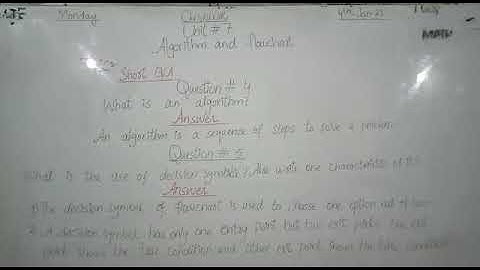 Monday
Unit # 1
Algorithm and flowchart
Short Q/A
Question # 4
What is an algorithm?
Answer
An algorithm is a sequence of steps to solve a problem.
Question # 5
What is the use of decision symbol? Also write one characteristic of
Answer
The decision symbol of flowchart is used to choose one option out of two
A decision symbol has only one entry point but two exit points. One exit
point shows the true condition and other exit point shows the false condition